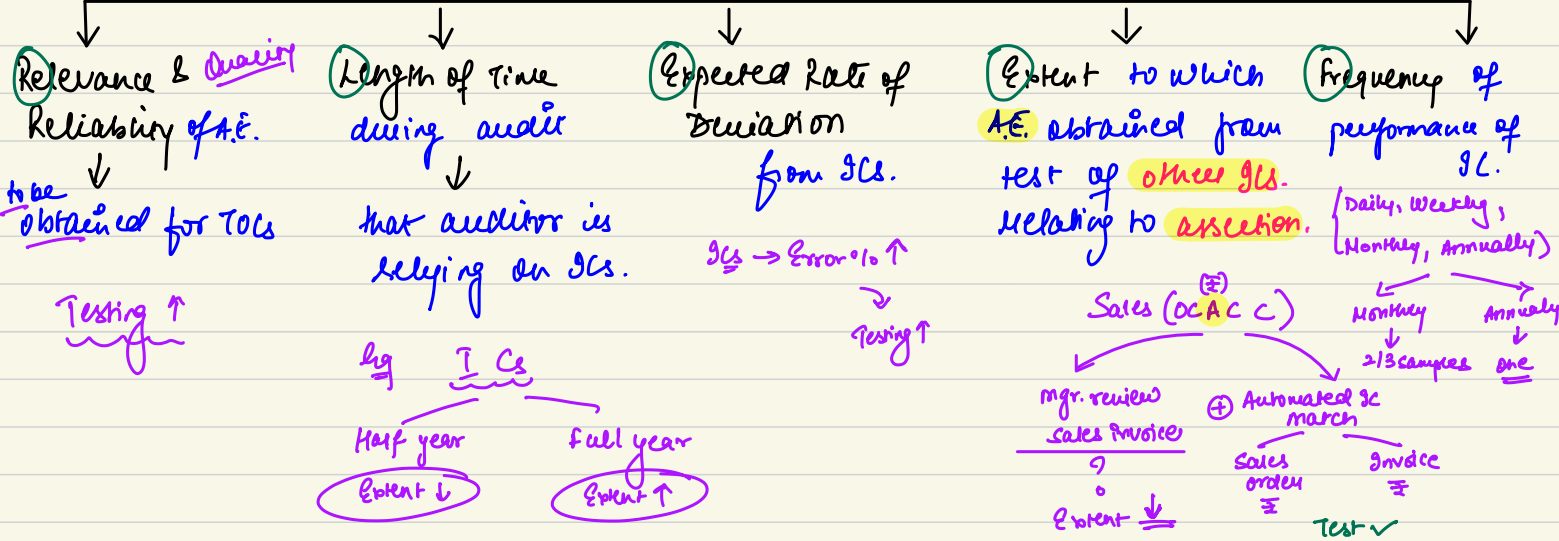 Relevance & Quality
Reliability of A.E.
to be
obtained for TOCs
Testing ↑
Length of Time
during audit
that auditor is
relying on ICs.
Eg T Cs
Half year
Extent ↓
Full year
Extent ↑
Expected Rate of
Deviation
from ICs.
ICs → Error % ↑
Testing ↑
Extent to which
A.E. obtained from
test of other ICs.
relating to assertion.
(₹)
Sales (OCACC)
mgr. review
sales invoice
?
Extent ↓
+ Automated IC
match
Sales
order
₹
Invoice
₹
Test ✓
Frequency of
performance of
IC.
(Daily, Weekly,
Monthly, Annually)
Monthly
2/3 samples
Annualy
one